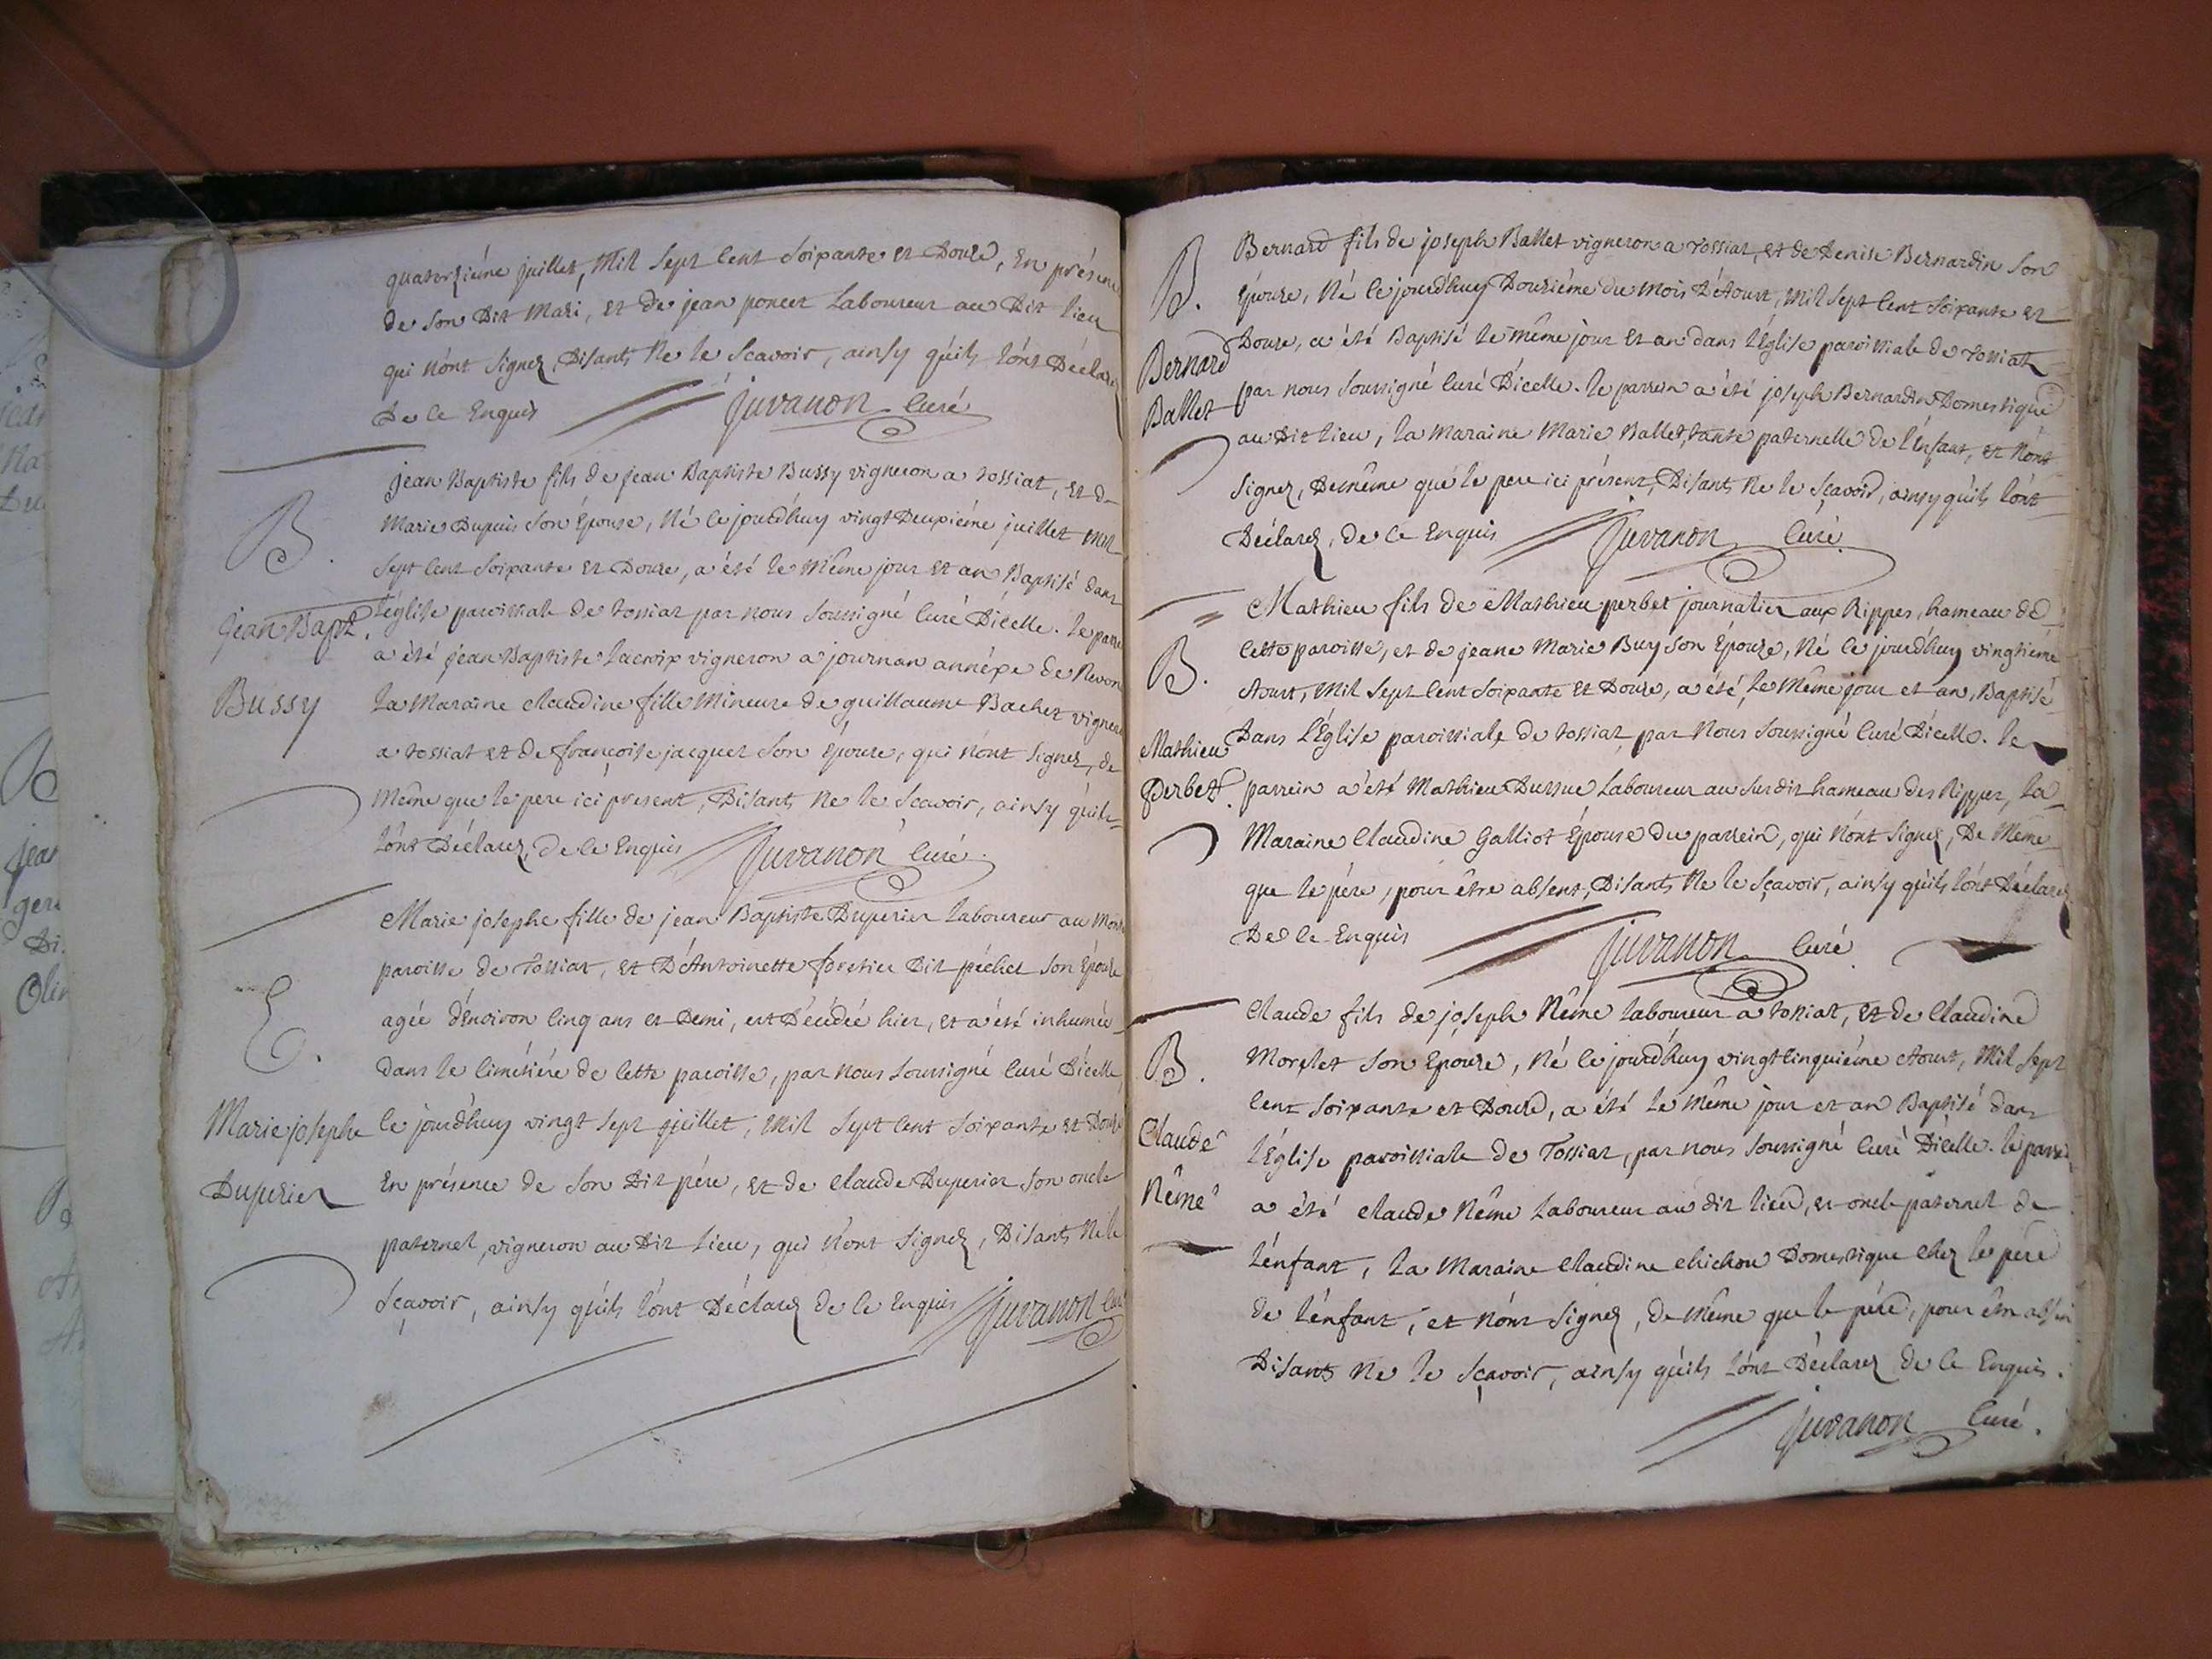 quatorziéme juillet, Mil Sept Cent Soixante et Douze, En présence
de Son Dit Mari, et de jean poncet Laboureur au Dit lieu
qui nónt Signez, Disants Ne le Scavoir, ainsy qúils lónt Déclaré
De ce Enquis Juvanon Curé
jean Baptiste fils de jean Baptiste Bussy vigneron a tossiat, et de
Marie Dupuis Son Épouse, Né ce jourdhuy vingt Deuxiéme juillet Mil
B.
Sept Cent Soixante et Douze, a été le Même jour et an Baptisé dans
l'église paroissiale de tossiat par nous Soussigné Curé Dicelle. le parre
Jean Bapt.
a été jean Baptiste Lacroix vigneron a journan annéxe de Revon
Bussy
La Maraine Claudine fille Mineure de guillaume Bachet vigneron
a tossiat et de françoise jacquet Son Épouse, qui nónt Signez, de
Même que le pere ici present, Disants Ne le Scavoir, ainsy qúils
lónt Déclarez, de ce Enquis Juvanon Curé.
Marie josephe fille de jean Baptiste Dupérier Laboureur au Mont
paroisse de tossiat, et D'Antoinette foretier Dit péchet Son Épouse
E.
agée dénviron Cinq ans et Demi, est Décédée hier, et a été inhumée
dans le Cimétiére de Cette paroisse, par nous Soussigné Curé Dicelle
Marie josephe
Ce jourdhuy vingt Sept juillet, Mil Sept Cent Soixante et Douze
Duperier
En présence de Son Dit pére, et de Claude Duperier Son oncle
paternel, vigneron au Dit lieu, qui nónt Signez, Disants Ne le
Sçavoir, ainsy qúils lónt Déclarez de ce Enquis Juvanon Curé
Bernard fils de joseph Ballet vigneron a tossiat, et de Denise Bernardin Son
B.
Épouse, Né ce jourdhuy Douziéme du Mois D'Aoust, Mil Sept Cent Soixante et
Douze, a été Baptisé le Même jour et an dans l'Église paroissiale de tossiat
Bernard
par nous Soussigné Curé Dicelle. le parrein a été joseph Bernardin Domestique
Ballet
au Dit lieu, la Maraine Marie Ballet, tante paternelle de l'Enfant, et nónt
Signez, De même que le pere ici présent, Disants Ne le Sçavoir, ainsy qúils lónt
Déclarez, de ce Enquis Juvanon Curé.
Mathieu fils de Mathieu perbet journalier aux Rippes, hameau de
Cette paroisse, et de jeane Marie Buy Son Épouse, Né ce jourdhuy vingtiéme
B.
Aoust, Mil Sept Cent Soixante et Douze, a été le Même jour et an, Baptisé
Dans l'Église paroissiale de tossiat, par Nous Soussigné Curé Dicelle. le
Mathieu
Perbet.
parrein a été Mathieu Dussue Laboureur au Susdit hameau des Rippes, la
Maraine Claudine Galliot Épouse du parrein, qui nónt Signez, De Même
que le pére, pour être absent, Disants Ne le Sçavoir, ainsy qúils lónt Déclarez
De ce Enquis Juvanon Curé.
Claude fils de joseph Nême Laboureur a tossiat, et de Claudine
Morelet Son Épouse, Né ce jourdhuy vingt Cinquiéme Aoust, Mil Sept
B.
Cent Soixante et Douze, a été le Même jour et an Baptisé dans
Claude
l'Église paroissiale de Tossiat, par nous Soussigné Curé Dicelle. le parrein
Nême
a été Claude Nême Laboureur au dit lieu, et oncle paternel de
lénfant, la Maraine Claudine Chichou Domestique Chez le pére
de lénfant, et nónt Signez, de Même que le pére, pour être absent
Disants Ne le Sçavoir, ainsy qúils lónt Déclarez de ce Enquis.
Juvanon Curé.